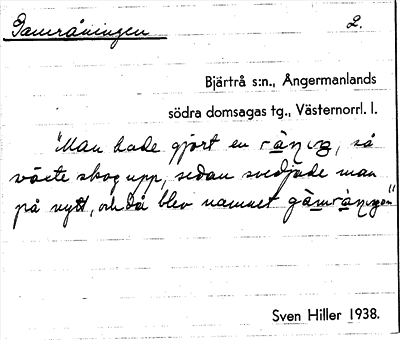 Gamråningen 2.
Bjärtrå s:n., Ångermanlands
södra domsagas tg., Västernorrl. l.
"Man hade gjort en råning, så
växte skog upp, sedan svedjade man
på nytt, och då blev namnet gamråningen"
Sven Hiller 1938.